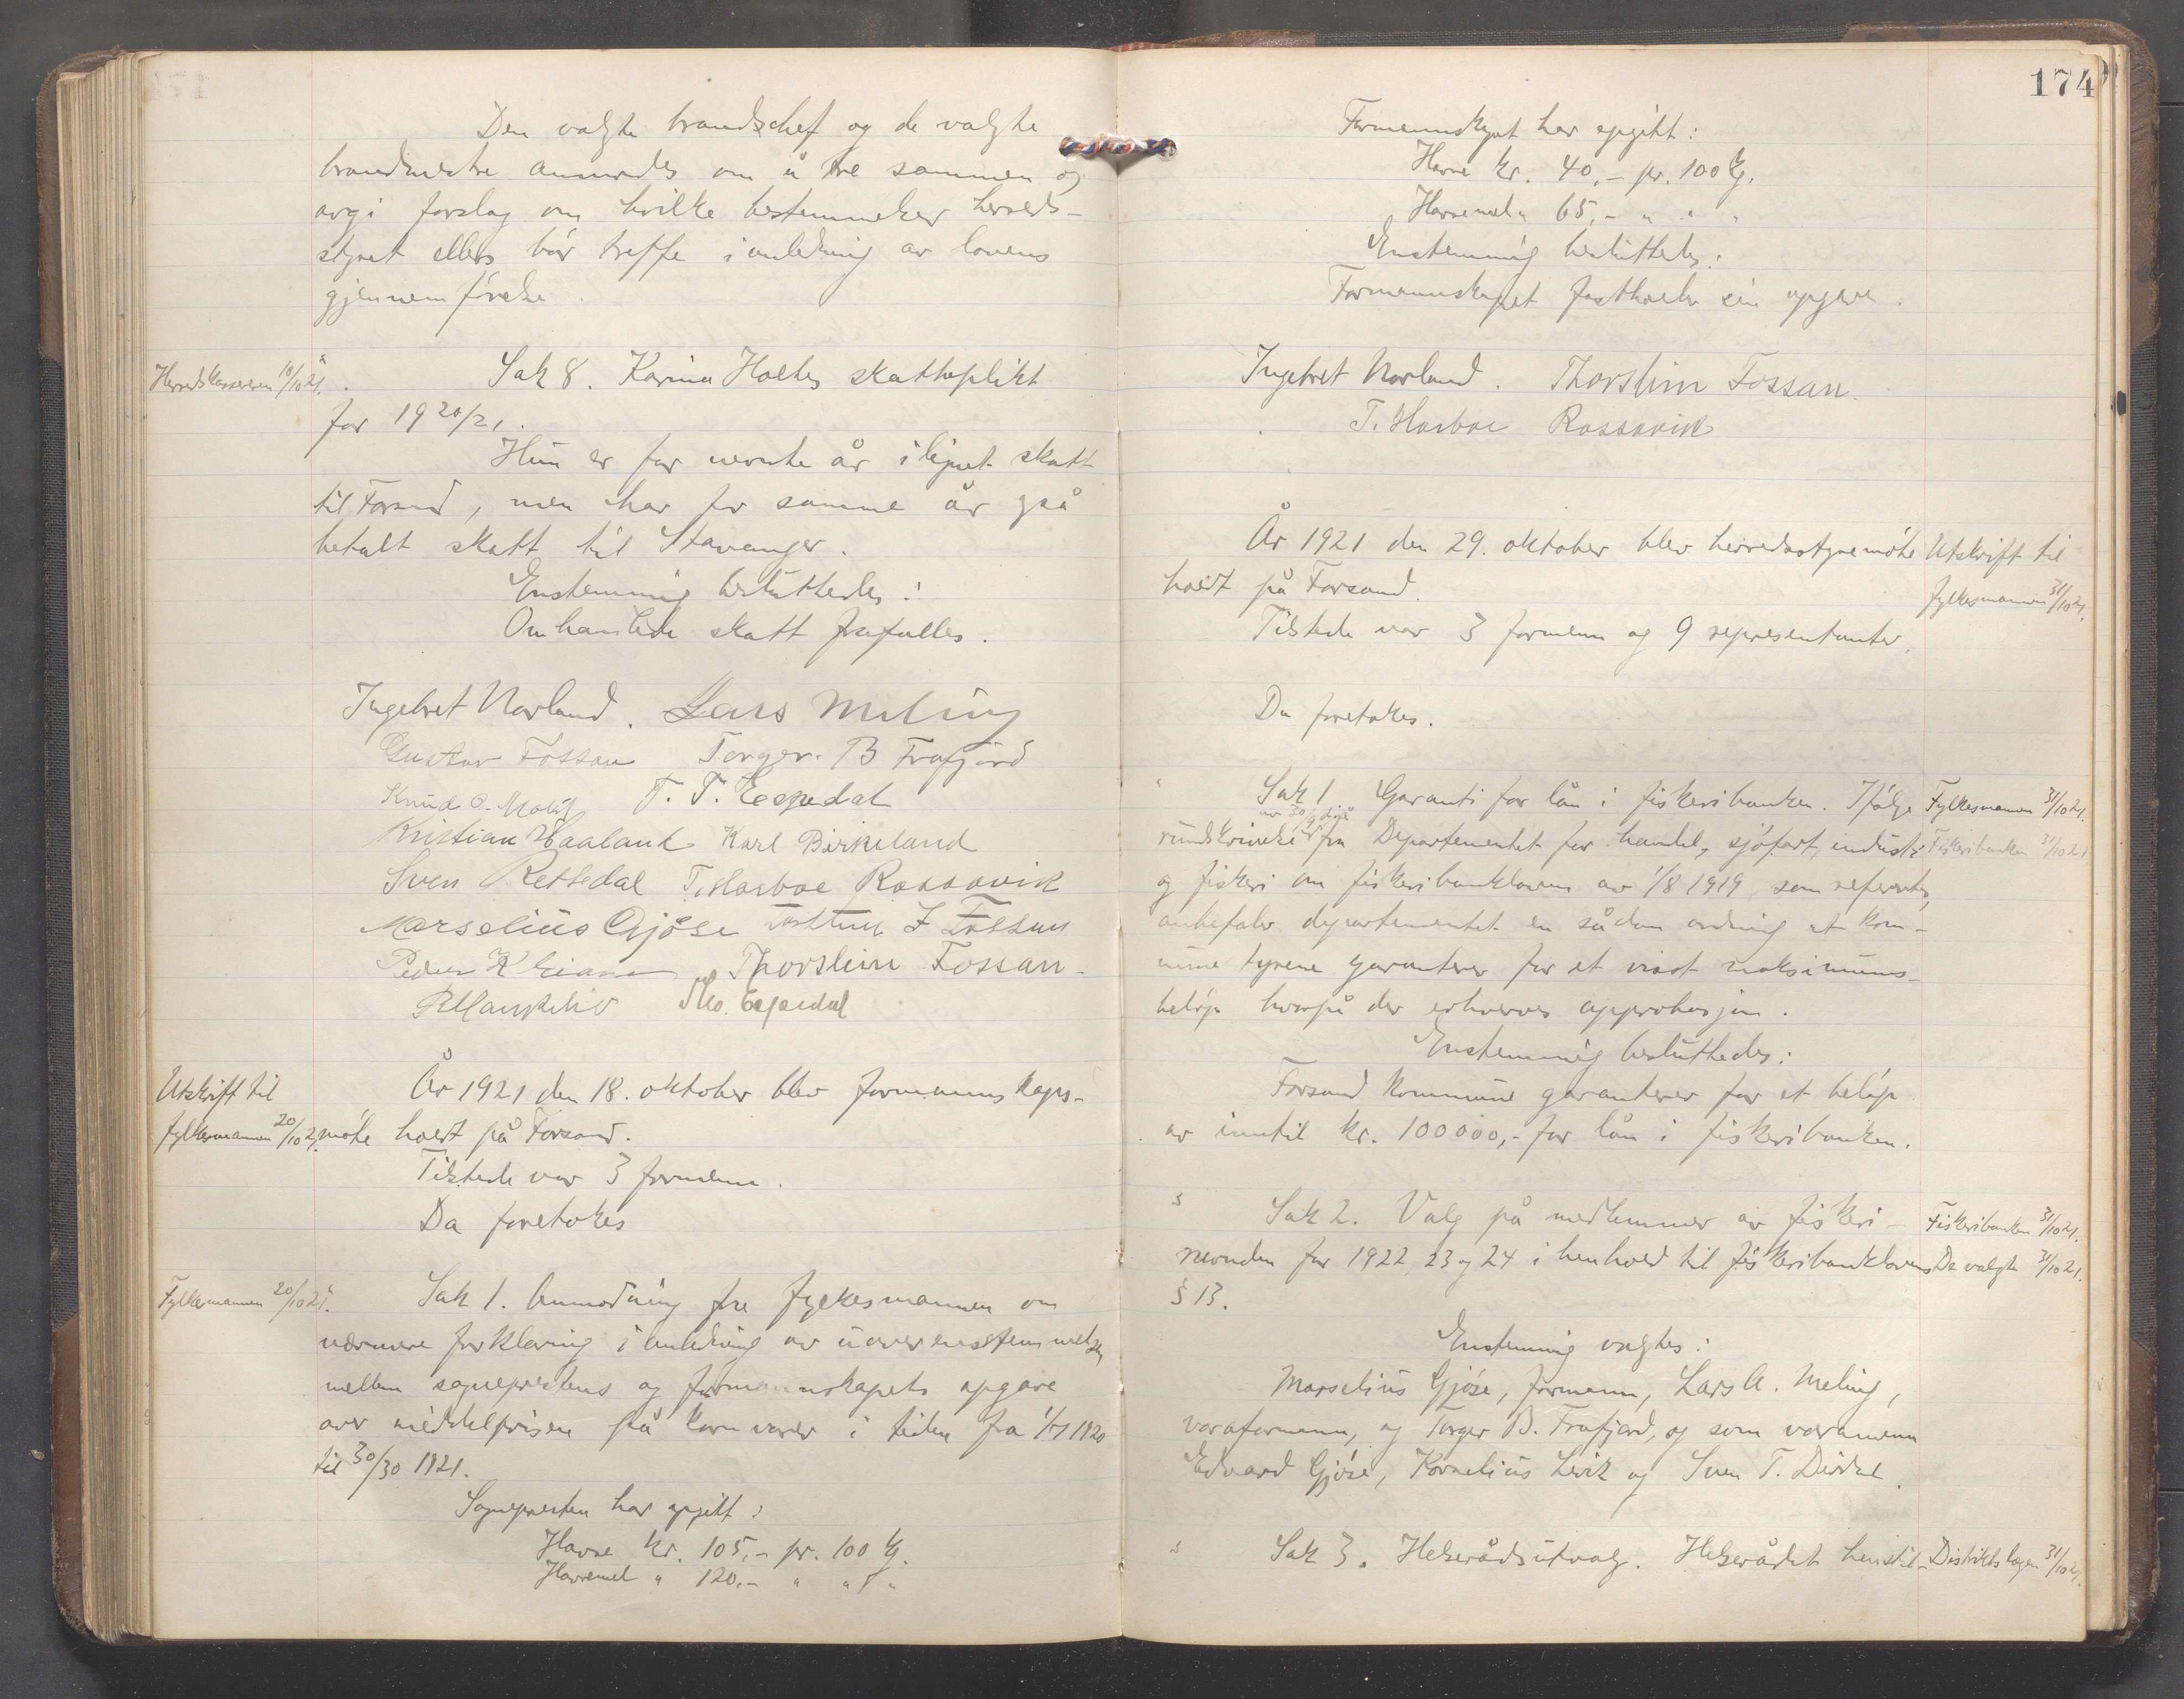 Den valgte brandschef og de valgte
brandmestre anmodes om å tre sammen og
avgi forslag om hvilke bestemmelser herreds-
styret ellers bör treffe i anledning av lovens
gjennemförelse.
Herredskassereren 10/10 21.
Sak 8. Karina Holtes skatteplikt
for 1920/21.
Hun er for nevnte år ilignet skatt
til Forsand, men har for samme år også
betalt skatt til Stavanger.
Enstemmig besluttedes:
Omhandlede skatt frafalles.
Ingebret Norland. Lars Meling
Gustav Fossan Torger. B Frafjord
Knud O. T. T. Espedal
Kristian Haaland Karl Birkeland
Sven Rettedal T. Hasboe Rossavik
Marselius Gjöse J Fossan
Peder K Thorstein Fossan
Espedal
Utskrift til
fylkesmannen 20/10 21.
År 1921 den 18. oktober blev formannskaps-
möte holdt på Forsand.
Tilstede var 3 formenn.
Da foretokes
Fylkesmannen 20/10 21.
Sak 1. Anmodning fra fylkesmannen om
nærmere forklaring i anledning av uoverensstemmelsen
mellem sogneprestens og formannskapets opgave
over middelprisen på kornvarer i tiden fra 1/7 1920
til 30/30 1921.
Sognepresten har opgitt:
Havre kr. 105,- pr. 100 kg.
Havremel " 120,- " " "
174
Formennskapet har opgitt:
Havre kr. 40,- pr. 100 kg.
Havremel " 65,- " " "
Enstemmig besluttedes:
Formennskapet fastholder sin opgave.
Ingebret Norland. Thorstein Fossan.
T. Hasboe Rossavik
År 1921 den 29. oktober blev herredsstyremöte
holdt på Forsand.
Utskrift til
fylkesmannen 31/10 21.
Tilstede var 3 formenn og 9 representanter.
Da foretokes.
Sak 1. Garanti for lån i fiskeribanken. Ifölge
Fylkesmannen 31/10 21.
av 30/9 
rundskrivelse fra Departementet for handel, sjöfart, industri
Fiskeribanken 31/10 21.
og fiskeri om fiskeribankloven av 1/8 1919, som refertes,
anbefaler departementet en sådan ordning at kom-
munestyrene garanterer for et visst maksimums-
belöp hvorpå der erhverves approbasjon.
Enstemmig besluttedes:
Forsand kommune garanterer for et belöp
av inntil kr. 100000,- for lån i fiskeribanken.
Sak 2. Valg på medlemmer av fiskeri-
Fiskeribanken 31/10 21.
nevnden for 1922, 23 og 24 i henhold til fiskeribanklovens
De valgte 31/10 21.
§ 13.
Enstemmig valgtes:
Marselius Gjöse, formann, Lars A. Meling,
varaformann, og Torger B. Frafjord, og som varamenn
Edvard Gjöse, Kornelius Levik og Sven T. Dirdal.
Sak 3. Helserådsutvalg. Helserådet henstil-
Distriktslægen 31/10 21.